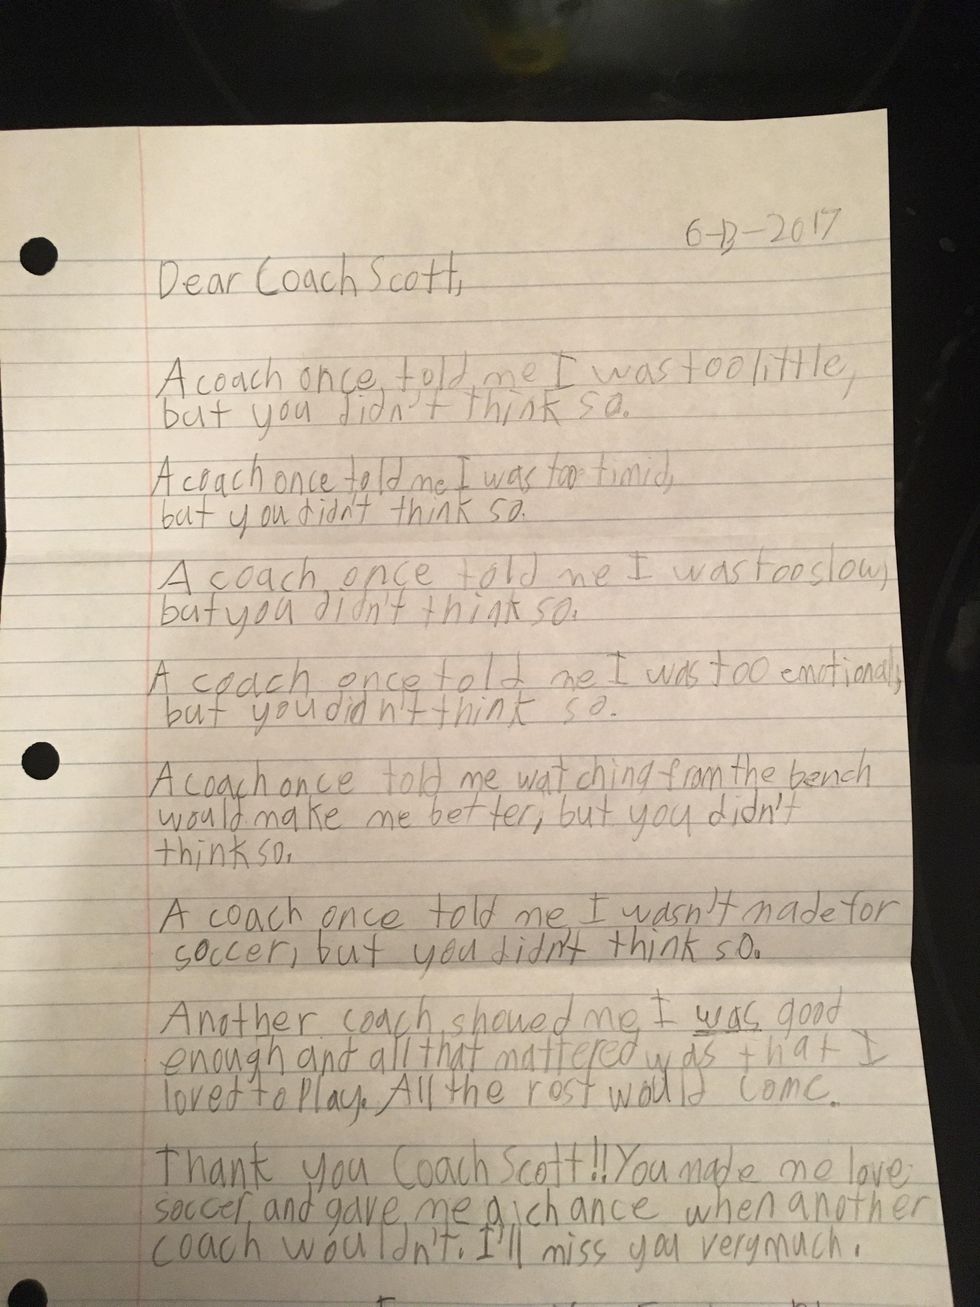 6-13-2017
Dear Coach Scott,
A coach once told me I was too little,
but you didn't think so.
A coach once told me I was too timid,
but you didn't think so.
A coach once told me I was too slow,
but you didn't think so.
A coach once told me I was too emotional,
but you didn't think so.
A coach once told me watching from the bench
would make me better, but you didn't
think so.
A coach once told me I wasn't made for
soccer, but you didn't think so.
Another coach showed me I was good
enough and all that mattered was that I
loved to play. All the rest would come.
Thank you Coach Scott!! You made me love
soccer and gave me a chance when another
coach wouldn't. I'll miss you very much.